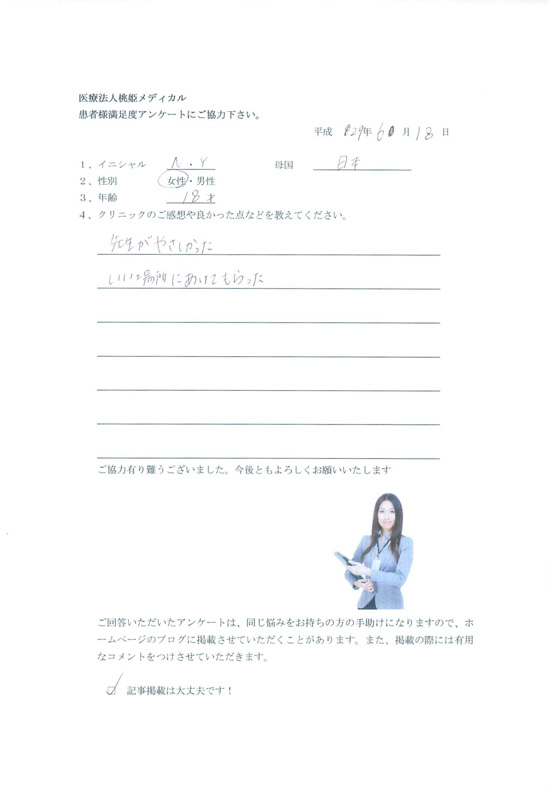 医療法人桃姫メディカル
患者様満足度アンケートにご協力下さい。
平成 29年 6月 18日
1、イニシャル A・Y 母国 日本
2、性別 女性・男性
3、年齢 18才
4、クリニックのご感想や良かった点などを教えてください。
先生がやさしかった
いい場所にあけてもらった
ご協力有り難うございました。今後ともよろしくお願いいたします
ご回答いただいたアンケートは、同じ悩みをお持ちの方の手助けになりますので、ホ
ームページのブログに掲載させていただくことがあります。また、掲載の際には有用
なコメントをつけさせていただきます。
記事掲載は大丈夫です！